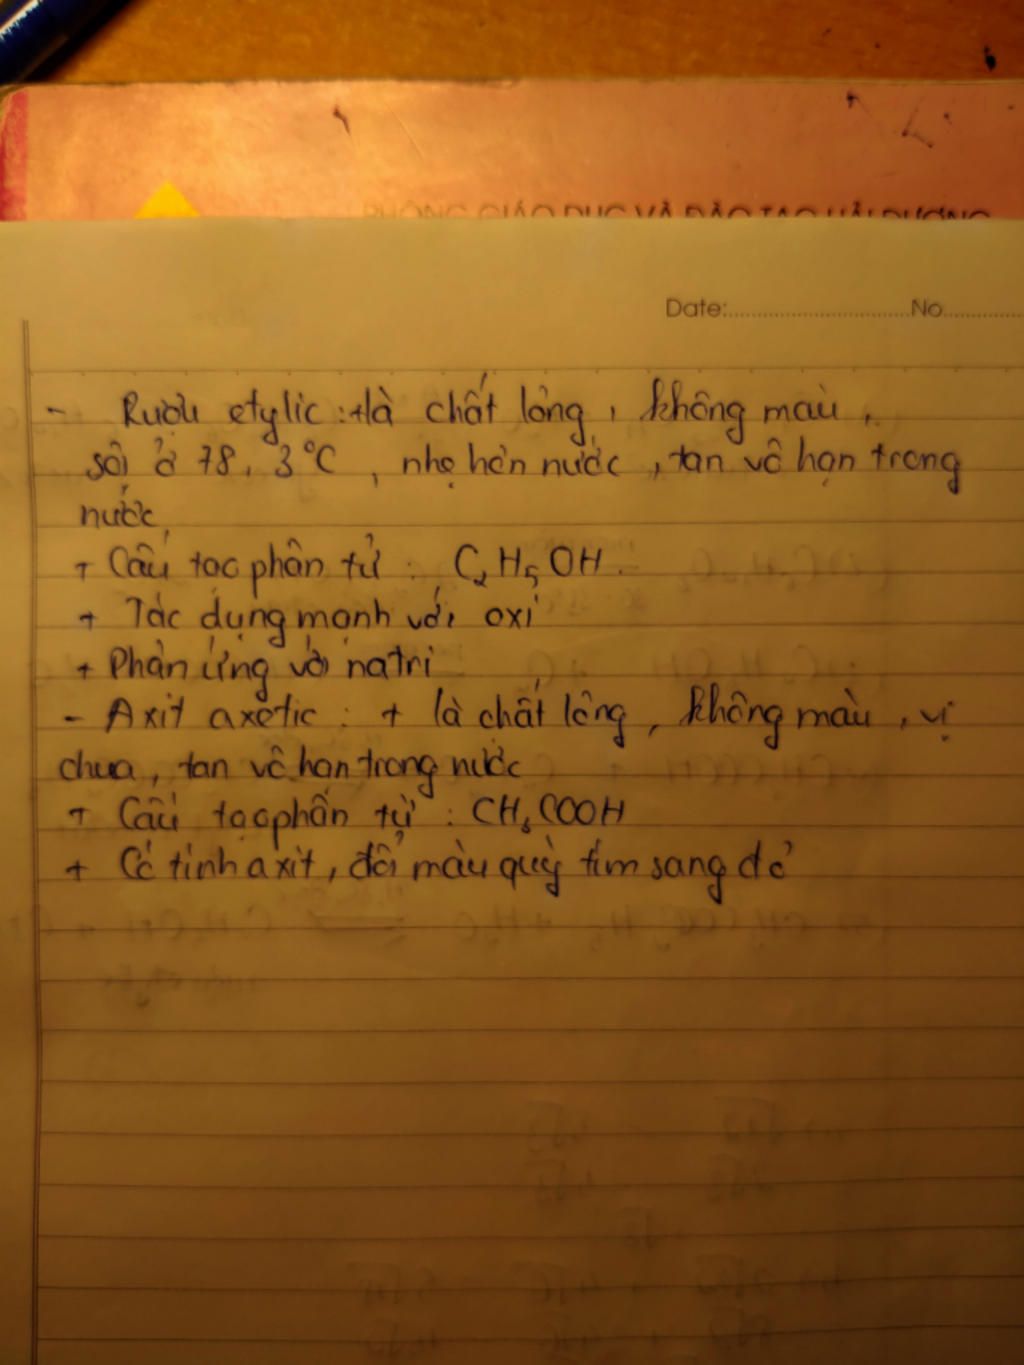 PHÒNG GIÁO DỤC VÀ ĐÀO TẠO HẢI DƯƠNG
Date: No
- Rượu etylic: + là chất lỏng, không màu,
sôi ở 78,3°C, nhẹ hơn nước, tan vô hạn trong
nước
+ Cấu tạo phân tử : C₂H₅OH.
+ Tác dụng mạnh với oxi
+ Phản ứng với natri
- Axit axetic: + là chất lỏng, không màu, vị
chua, tan vô hạn trong nước
+ Cấu tạo phân tử : CH₃COOH
+ Có tính axit, đổi màu quỳ tím sang đỏ